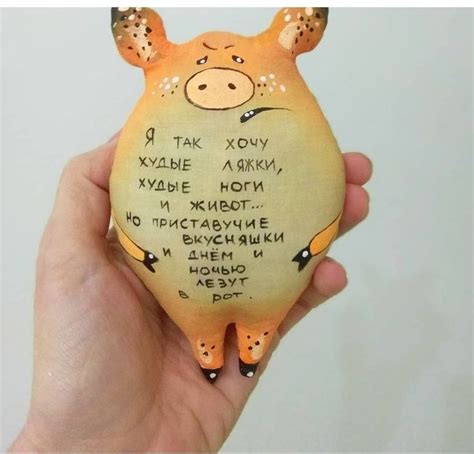 Я ТАК ХОЧУ
ХУДЫЕ ЛЯЖКИ,
ХУДЫЕ НОГИ
И ЖИВОТ...
НО ПРИСТАВУЧИЕ
ВКУСНЯШКИ
И ДНЁМ И
НОЧЬЮ
ЛЕЗУТ
В РОТ.